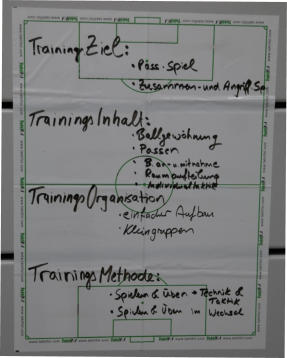 Trainings Ziel:
• Pass-Spiel
• Zusammen- und Angriff
Trainings Inhalt:
• Ballgewöhnung
• Passen
• B.an- u. mitnahme
• Raumaufteilung
• Individualtaktik
Trainings Organisation
• einfacher Aufbau
• Kleingruppen
Trainings Methode:
• Spielen & Üben → Technik &
Taktik
• Spielen & Üben im Wechsel